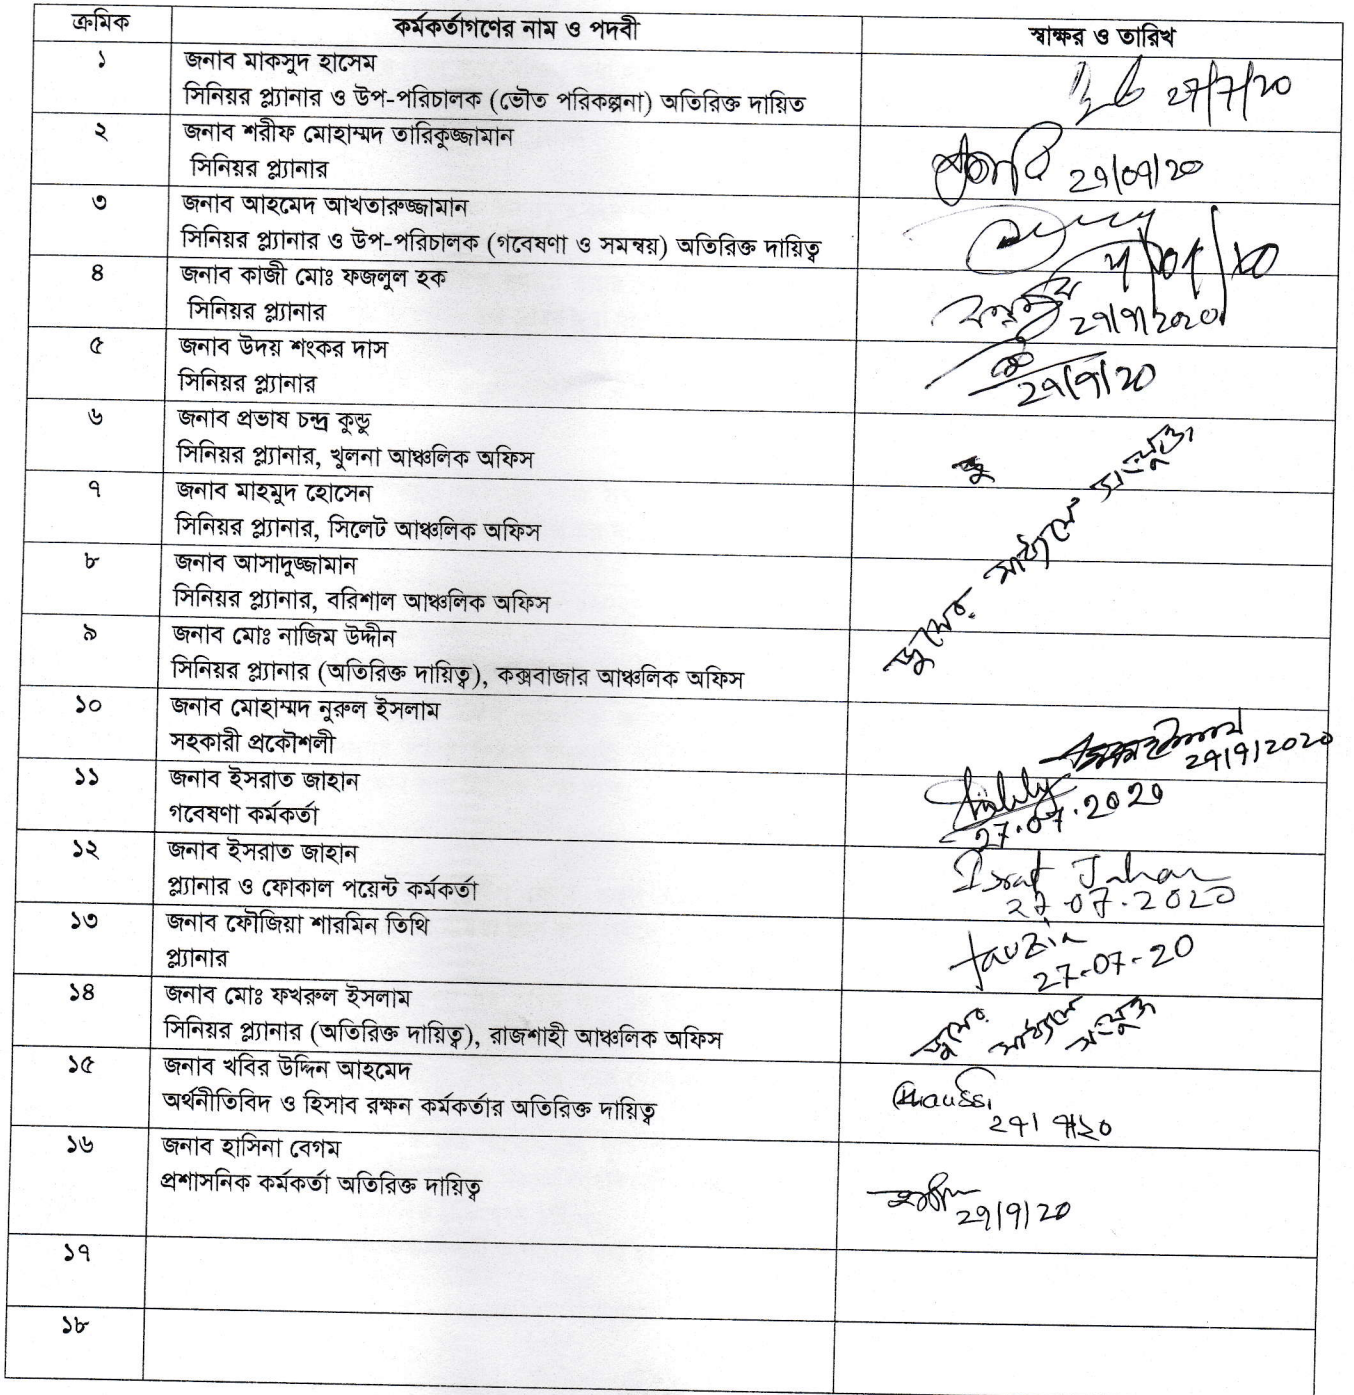 ক্রমিক কর্মকর্তাগণের নাম ও পদবী স্বাক্ষর ও তারিখ
১ জনাব মাকসুদ হাসেম
সিনিয়র প্ল্যানার ও উপ-পরিচালক (ভৌত পরিকল্পনা) অতিরিক্ত দায়িত 27/7/20
২ জনাব শরীফ মোহাম্মদ তারিকুজ্জামান
সিনিয়র প্ল্যানার ২৭/০৭/২০
৩ জনাব আহমেদ আখতারুজ্জামান
সিনিয়র প্ল্যানার ও উপ-পরিচালক (গবেষণা ও সমন্বয়) অতিরিক্ত দায়িত্ব
৪ জনাব কাজী মোঃ ফজলুল হক
সিনিয়র প্ল্যানার ২৭/৭/২০২০
৫ জনাব উদয় শংকর দাস
সিনিয়র প্ল্যানার ২৭/৭/২০
৬ জনাব প্রভাষ চন্দ্র কুন্ডু
সিনিয়র প্ল্যানার, খুলনা আঞ্চলিক অফিস
৭ জনাব মাহমুদ হোসেন
সিনিয়র প্ল্যানার, সিলেট আঞ্চলিক অফিস
৮ জনাব আসাদুজ্জামান
সিনিয়র প্ল্যানার, বরিশাল আঞ্চলিক অফিস
৯ জনাব মোঃ নাজিম উদ্দীন
সিনিয়র প্ল্যানার (অতিরিক্ত দায়িত্ব), কক্সবাজার আঞ্চলিক অফিস
জুমের মাধ্যমে সংযুক্ত
১০ জনাব মোহাম্মদ নুরুল ইসলাম
সহকারী প্রকৌশলী ২৭/৭/২০২০
১১ জনাব ইসরাত জাহান
গবেষণা কর্মকর্তা 27.07.2020
১২ জনাব ইসরাত জাহান Israt Jahan
প্ল্যানার ও ফোকাল পয়েন্ট কর্মকর্তা 27.07.2020
১৩ জনাব ফৌজিয়া শারমিন তিথি Fauzia
প্ল্যানার 27-07-20
১৪ জনাব মোঃ ফখরুল ইসলাম
সিনিয়র প্ল্যানার (অতিরিক্ত দায়িত্ব), রাজশাহী আঞ্চলিক অফিস জুমের মাধ্যমে সংযুক্ত
১৫ জনাব খবির উদ্দিন আহমেদ
অর্থনীতিবিদ ও হিসাব রক্ষন কর্মকর্তার অতিরিক্ত দায়িত্ব ২৭/৭/২০
১৬ জনাব হাসিনা বেগম
প্রশাসনিক কর্মকর্তা অতিরিক্ত দায়িত্ব ২৭/৭/২০
১৭
১৮